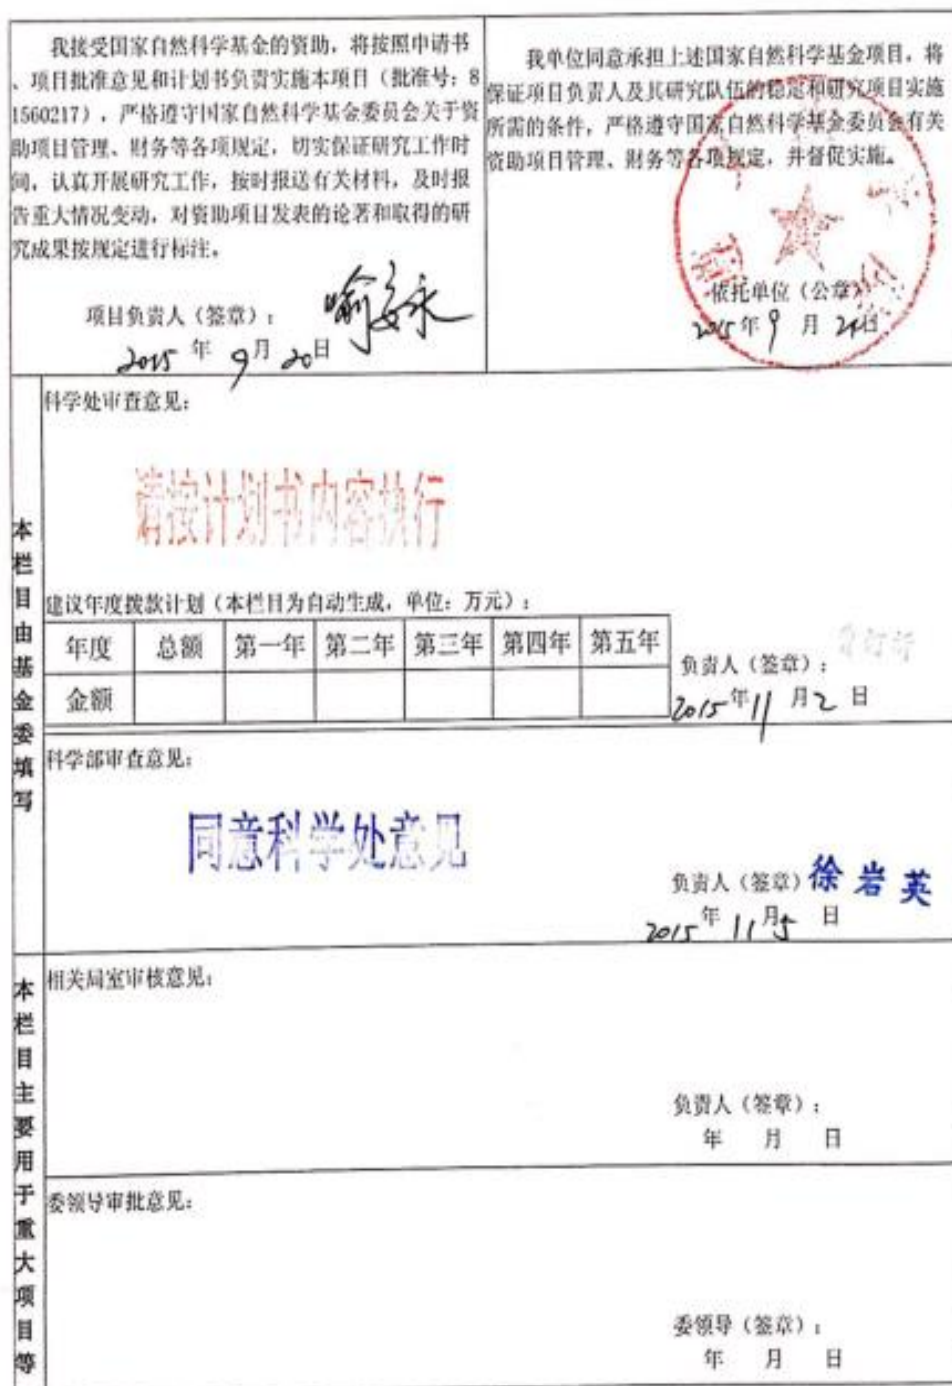 我接受国家自然科学基金的资助，将按照申请书
、项目批准意见和计划书负责实施本项目（批准号：8
1560217），严格遵守国家自然科学基金委员会关于资
助项目管理、财务等各项规定，切实保证研究工作时
间，认真开展研究工作，按时报送有关材料，及时报
告重大情况变动，对资助项目发表的论著和取得的研
究成果按规定进行标注。
项目负责人（签章）：
2015 年 9 月 20 日
我单位同意承担上述国家自然科学基金项目，将
保证项目负责人及其研究队伍的稳定和研究项目实施
所需的条件，严格遵守国家自然科学基金委员会有关
资助项目管理、财务等各项规定，并督促实施。
依托单位（公章）
2015 年 9 月 日
本栏目由基金委填写
科学处审查意见：
请按计划书内容执行
建议年度拨款计划（本栏目为自动生成，单位：万元）：
年度 总额 第一年 第二年 第三年 第四年 第五年
金额
负责人（签章）：
2015 年 11 月 2 日
科学部审查意见：
同意科学处意见
负责人（签章） 徐岩英
2015 年 11 月 5 日
本栏目主要用于重大项目等
相关局室审核意见：
负责人（签章）：
年 月 日
委领导审批意见：
委领导（签章）：
年 月 日